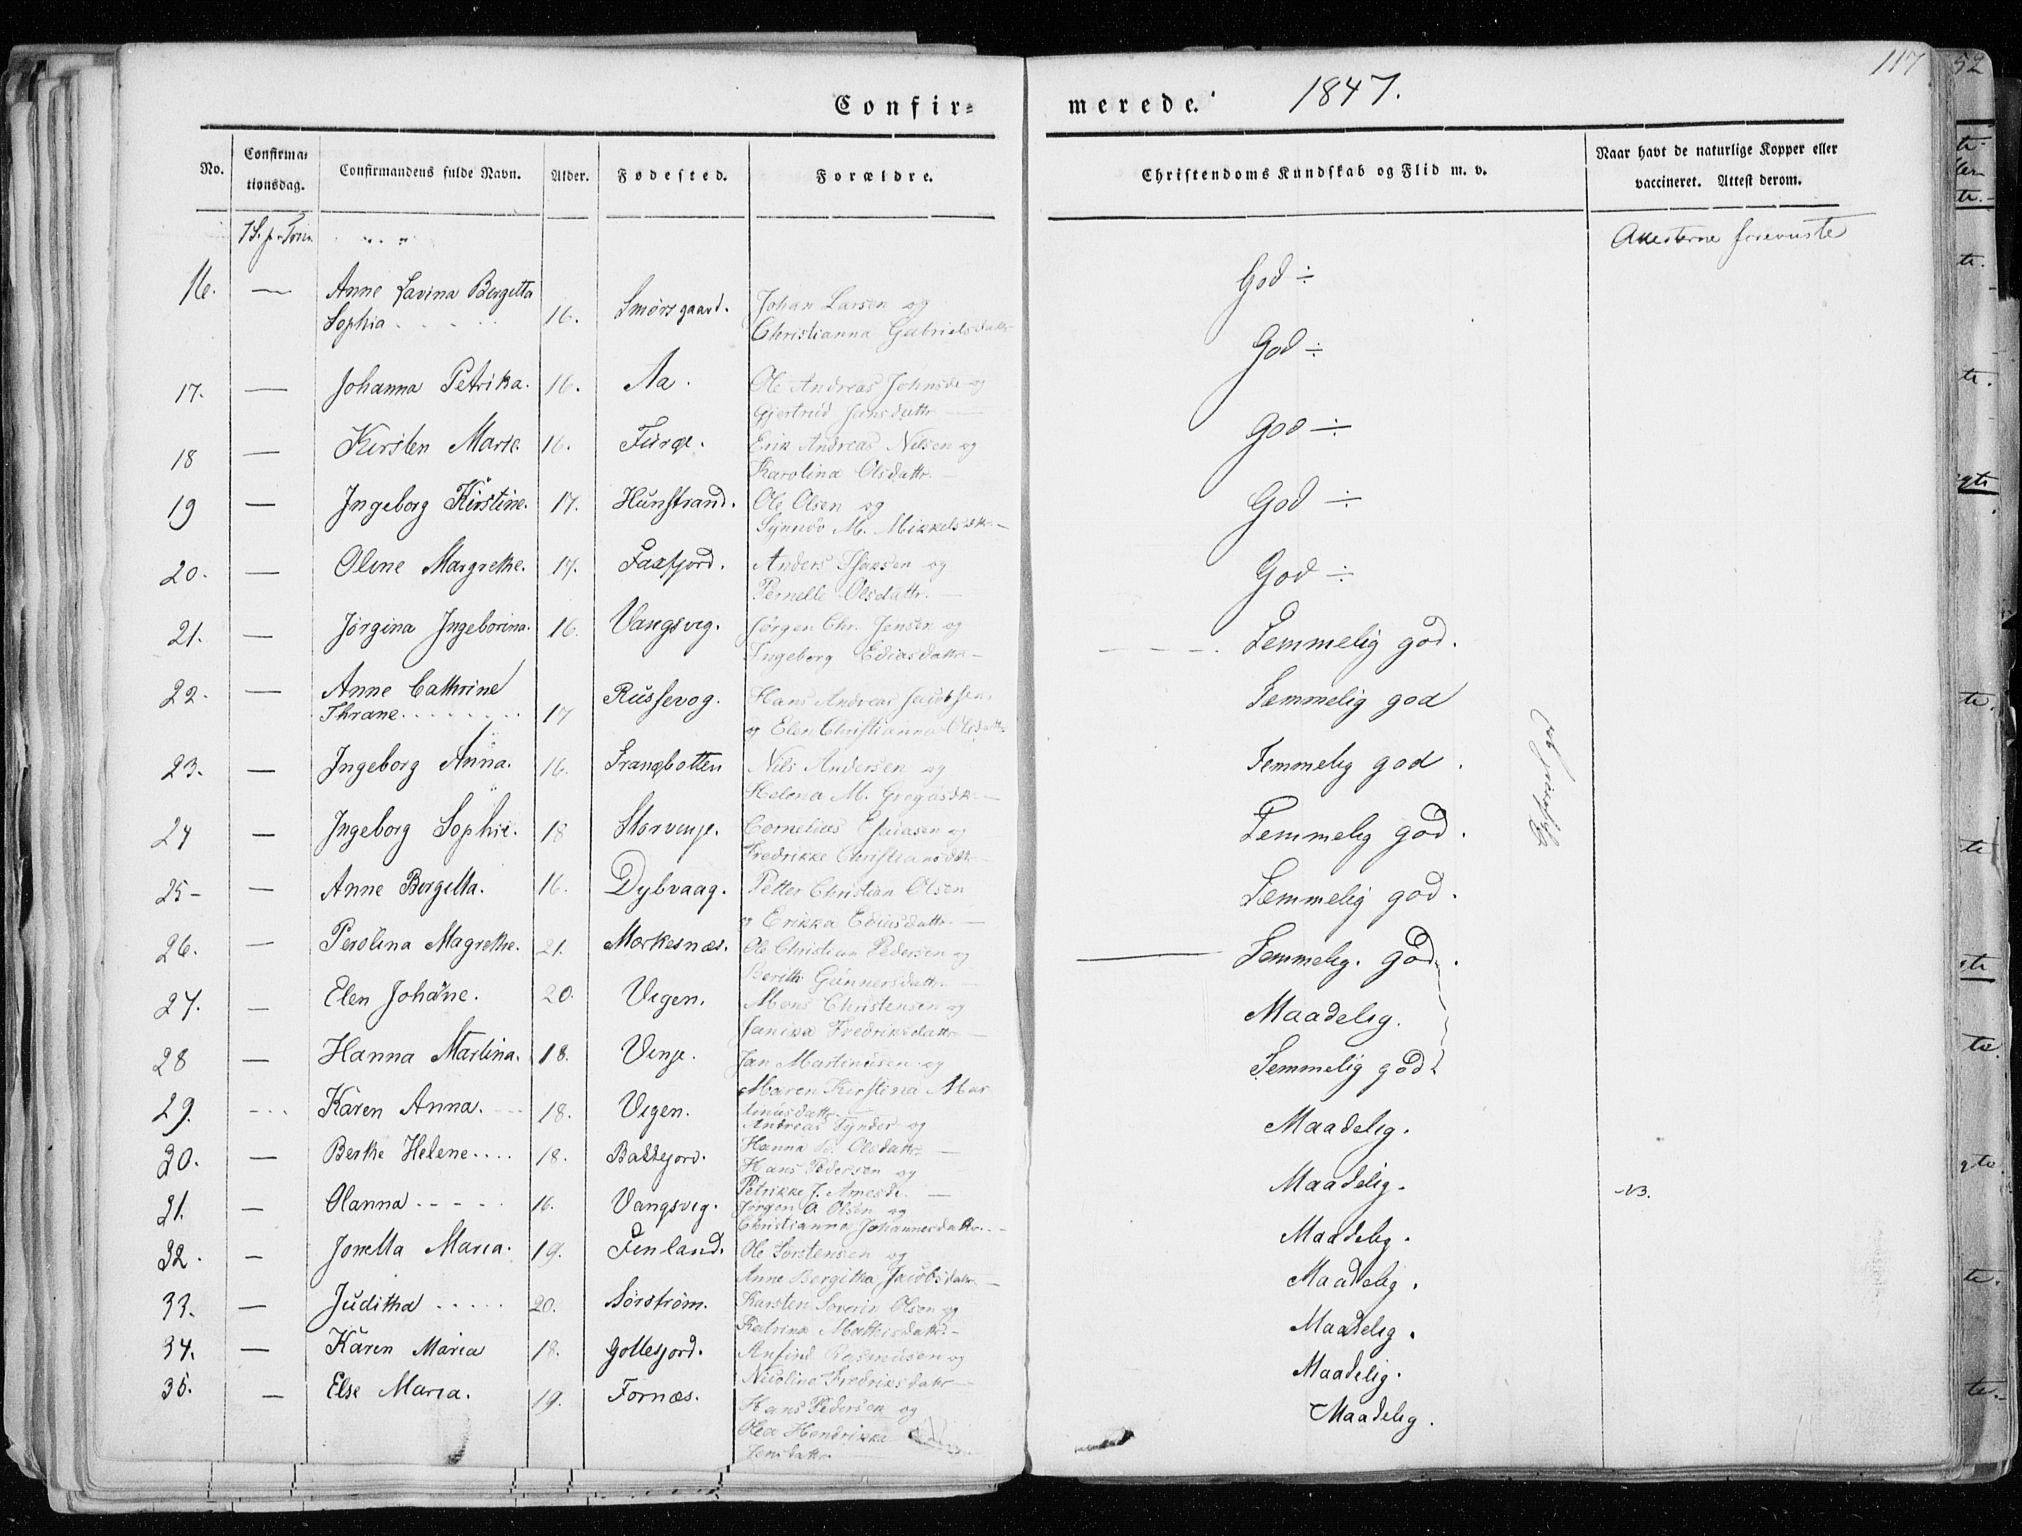 Confir=
merede. 1847.
117
52
No.
Confirma-
tionsdag.
Confirmandens fulde Navn.
Alder.
Fødested.
Forældre.
Christendoms Kundskab og Flid m. v.
Naar havt de naturlige Kopper eller
vaccineret. Attest derom.
7 S. p. Trin.
Attesterne foreviiste
16. — Anne Lavina Bergetta
Sophia 16. Smørsgaard. Johan Larsen og
Christianna Gabrielsdattr
God ÷
17. — Johanna Petrika. 16. Aa. Ole Andreas Johns og
Gjertrud Jensdattr.
God ÷
18 — Kirsten Marie. 16. Erik Andreas Nilsen og
Karolina Olsdattr.
God ÷
19 — Ingeborg Kirstine. 17. Hunstrand. Ole Olsen og
Synnøv M. Mikkelsdtr.
God ÷
20. — Oline Margrethe. 17. Laxfjord. Anders Hansen og
Pernelle Olsdattr.
God ÷
21. — Jørgina Ingeborina. 16. Vangsvig. Jørgen Chr. Jensen og
Ingeborg Ediasdattr.
Temmelig god.
22. — Anne Cathrine
Thrane 17 Russevog. Hans Andreas Jacobsen
og Elen Christianna Olsdattr
Temmelig god
23. — Ingeborg Anna. 16. Trangbotten Nils Andersen og
Helena M. Gregusdtr.
Temmelig god.
24 — Ingeborg Sophie. 18 Storvinje. Cornelius Esaiasen og
Fredrikke Christiansdtr.
Temmelig god.
25 — Anne Bergitta. 16. Dybvaag. Petter Christian Olsen
og Erikka Ediasdattr.
Temmelig god.
26. — Perolina Magrethe. 21. Morkesnæs. Ole Christian Pedersen og
Berith Gunnersdattr.
Temmelig god.
27. — Elen Johane. 20. Vigen. Mons Christensen og
Fredriksdattr
Maadelig.
28 — Hanna Martina. 18. Vinje. Jan Martinusen og
Maren Kirstina Mar
tinusdattr.
Temmelig god.
29. Karen Anna. 18. Vigen. Andreas Tynder og
Hanna Olsdattr.
Maadelig.
30. — Berthe Helene 18. Baltefjord. Hans Pedersen og
Petrikke J.
Maadelig.
NB.
31. — Olanna 16. Vangsvig. Jørgen A Olsen og
Christianna Johannesdattr.
Maadelig.
32. — Jonetta Maria. 19. Finland. Ole Torstensen og
Anne Bergitha Jacobsdattr.
Maadelig.
33. — Juditha 20. Sørstrøm. Karsten Severin Olsen og
Katrina Mathisdattr.
Maadelig.
34. — Karen Maria 18. Gollefjord. Anfind Rasmusen og
Nicolina Fredriksdattr
Maadelig.
35. — Else Maria. 19. Fornæs. Hans Pedersen og
Olea Hendrikka
Jensdattr.
Maadelig.